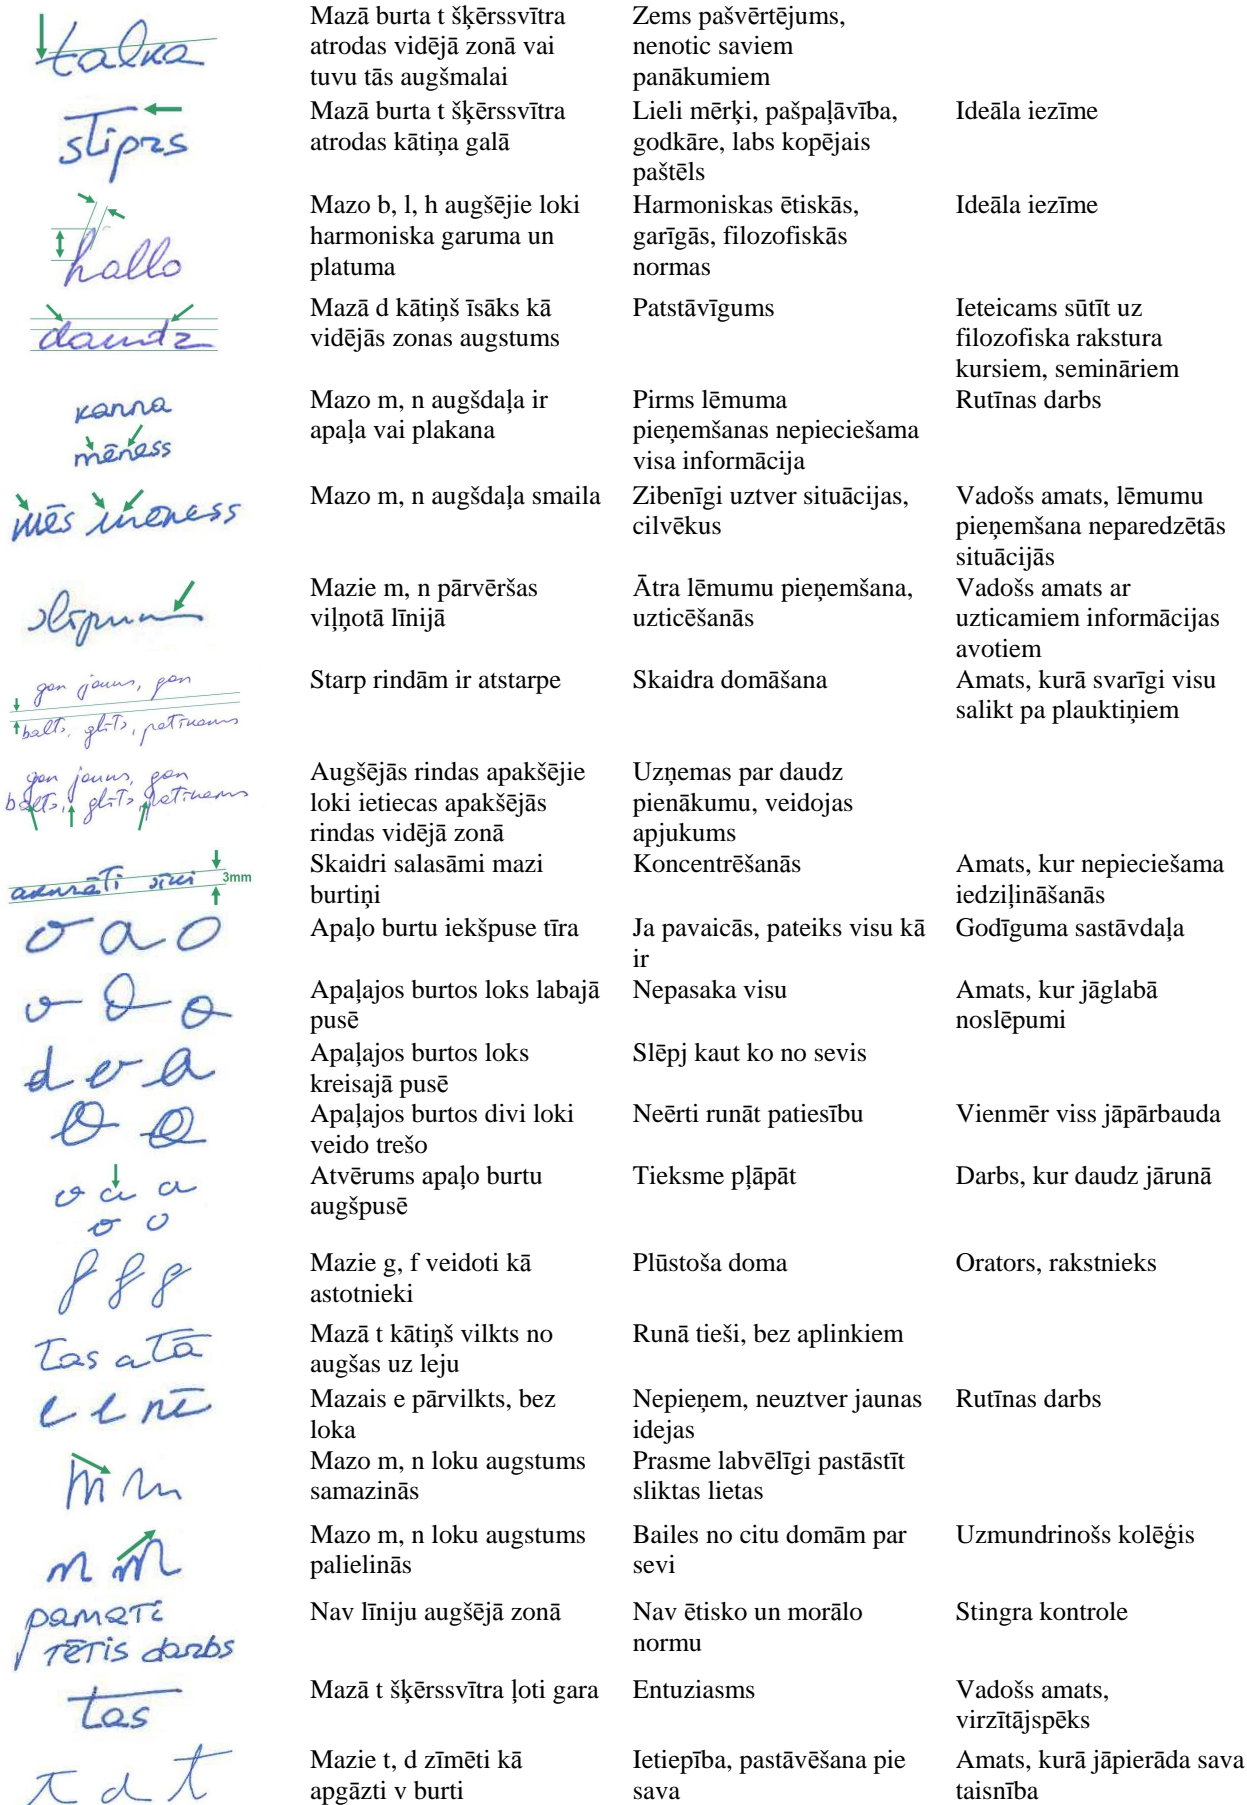 talka
Mazā burta t šķērssvītra
atrodas vidējā zonā vai
tuvu tās augšmalai
Zems pašvērtējums,
nenotic saviem
panākumiem
stiprs
Mazā burta t šķērssvītra
atrodas kātiņa galā
Lieli mērķi, pašpaļāvība,
godkāre, labs kopējais
paštēls
Ideāla iezīme
hallo
Mazo b, l, h augšējie loki
harmoniska garuma un
platuma
Harmoniskas ētiskās,
garīgās, filozofiskās
normas
Ideāla iezīme
daudz
Mazā d kātiņš īsāks kā
vidējās zonas augstums
Patstāvīgums
Ieteicams sūtīt uz
filozofiska rakstura
kursiem, semināriem
kanna
mēness
Mazo m, n augšdaļa ir
apaļa vai plakana
Pirms lēmuma
pieņemšanas nepieciešama
visa informācija
Rutīnas darbs
mēs mēness
Mazo m, n augšdaļa smaila
Zibenīgi uztver situācijas,
cilvēkus
Vadošs amats, lēmumu
pieņemšana neparedzētās
situācijās
Mazie m, n pārvēršas
viļņotā līnijā
Ātra lēmumu pieņemšana,
uzticēšanās
Vadošs amats ar
uzticamiem informācijas
avotiem
gan jauns, gan
balts, glīts, patīkams
Starp rindām ir atstarpe
Skaidra domāšana
Amats, kurā svarīgi visu
salikt pa plauktiņiem
gan jauns, gan
balts, glīts, patīkams
Augšējās rindas apakšējie
loki ietiecas apakšējās
rindas vidējā zonā
Uzņemas par daudz
pienākumu, veidojas
apjukums
akurāti sīki
3mm
Skaidri salasāmi mazi
burtiņi
Koncentrēšanās
Amats, kur nepieciešama
iedziļināšanās
o a o
Apaļo burtu iekšpuse tīra
Ja pavaicās, pateiks visu kā
ir
Godīguma sastāvdaļa
o o o
Apaļajos burtos loks labajā
pusē
Nepasaka visu
Amats, kur jāglabā
noslēpumi
d o a
Apaļajos burtos loks
kreisajā pusē
Slēpj kaut ko no sevis
o o
Apaļajos burtos divi loki
veido trešo
Neērti runāt patiesību
Vienmēr viss jāpārbauda
o a a
o o
Atvērums apaļo burtu
augšpusē
Tieksme pļāpāt
Darbs, kur daudz jārunā
f f g
Mazie g, f veidoti kā
astotnieki
Plūstoša doma
Orators, rakstnieks
Tas atā
Mazā t kātiņš vilkts no
augšas uz leju
Runā tieši, bez aplinkiem
e e nē
Mazais e pārvilkts, bez
loka
Nepieņem, neuztver jaunas
idejas
Rutīnas darbs
m m
Mazo m, n loku augstums
samazinās
Prasme labvēlīgi pastāstīt
sliktas lietas
n m
Mazo m, n loku augstums
palielinās
Bailes no citu domām par
sevi
Uzmundrinošs kolēģis
pamati
tētis darbs
Nav līniju augšējā zonā
Nav ētisko un morālo
normu
Stingra kontrole
tas
Mazā t šķērssvītra ļoti gara
Entuziasms
Vadošs amats,
virzītājspēks
t d t
Mazie t, d zīmēti kā
apgāzti v burti
Ietiepība, pastāvēšana pie
sava
Amats, kurā jāpierāda sava
taisnība